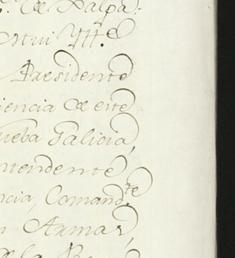 de Xalpa.
Mui Ytt.e
Presidente
iencia de este
ueba Galicia,
ntendente
ncia, Comand.te
n Armas,
de la